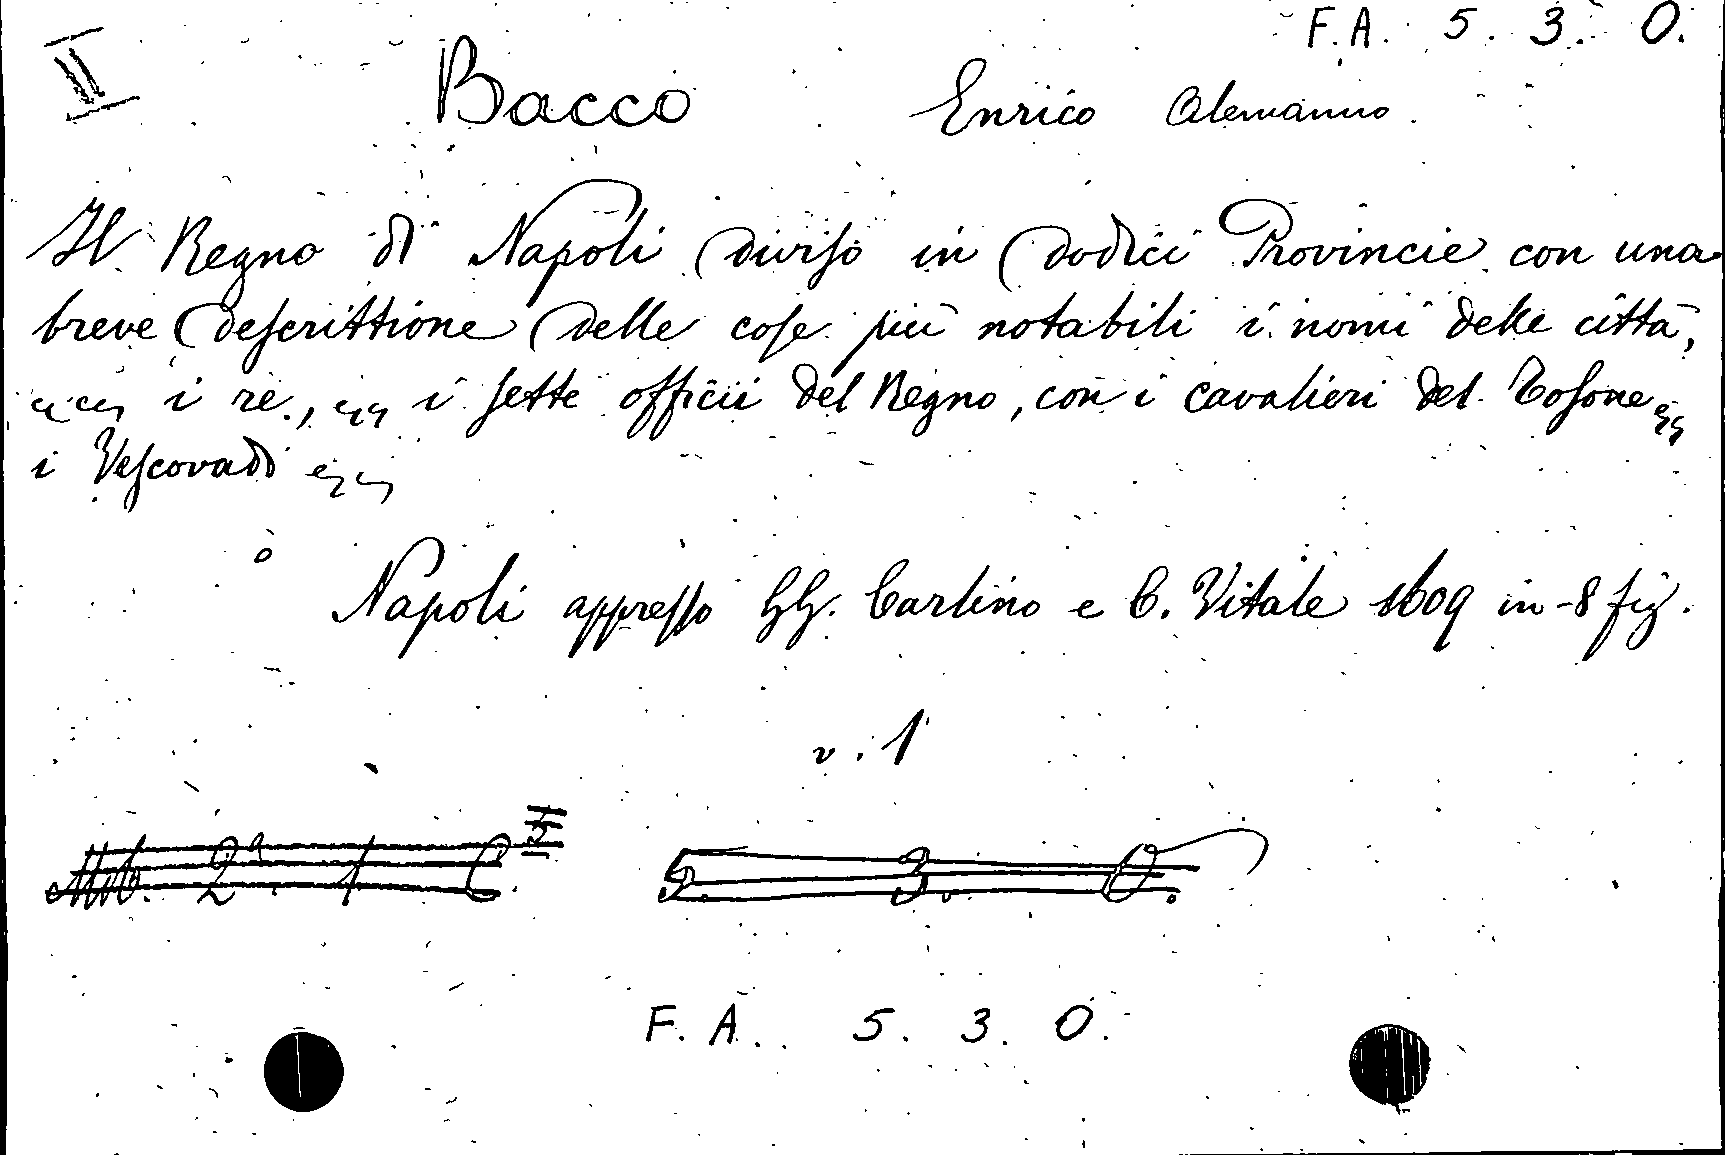 F.A. 5. 3. O.
II
Bacco Enrico Alemanno.
Il Regno di Napoli diviso in dodici Provincie con una
breve descrittione delle cose più notabili i nomi delle città,
i re, i sette officii del Regno, con i cavalieri del Tosone
i Vescovadi
Napoli appresso GG. Carlino e C. Vitale 1609 in-8 fig.
v. 1
Mob. 2ª. 1 C. 5. 3. O.
F. A. 5. 3. O.